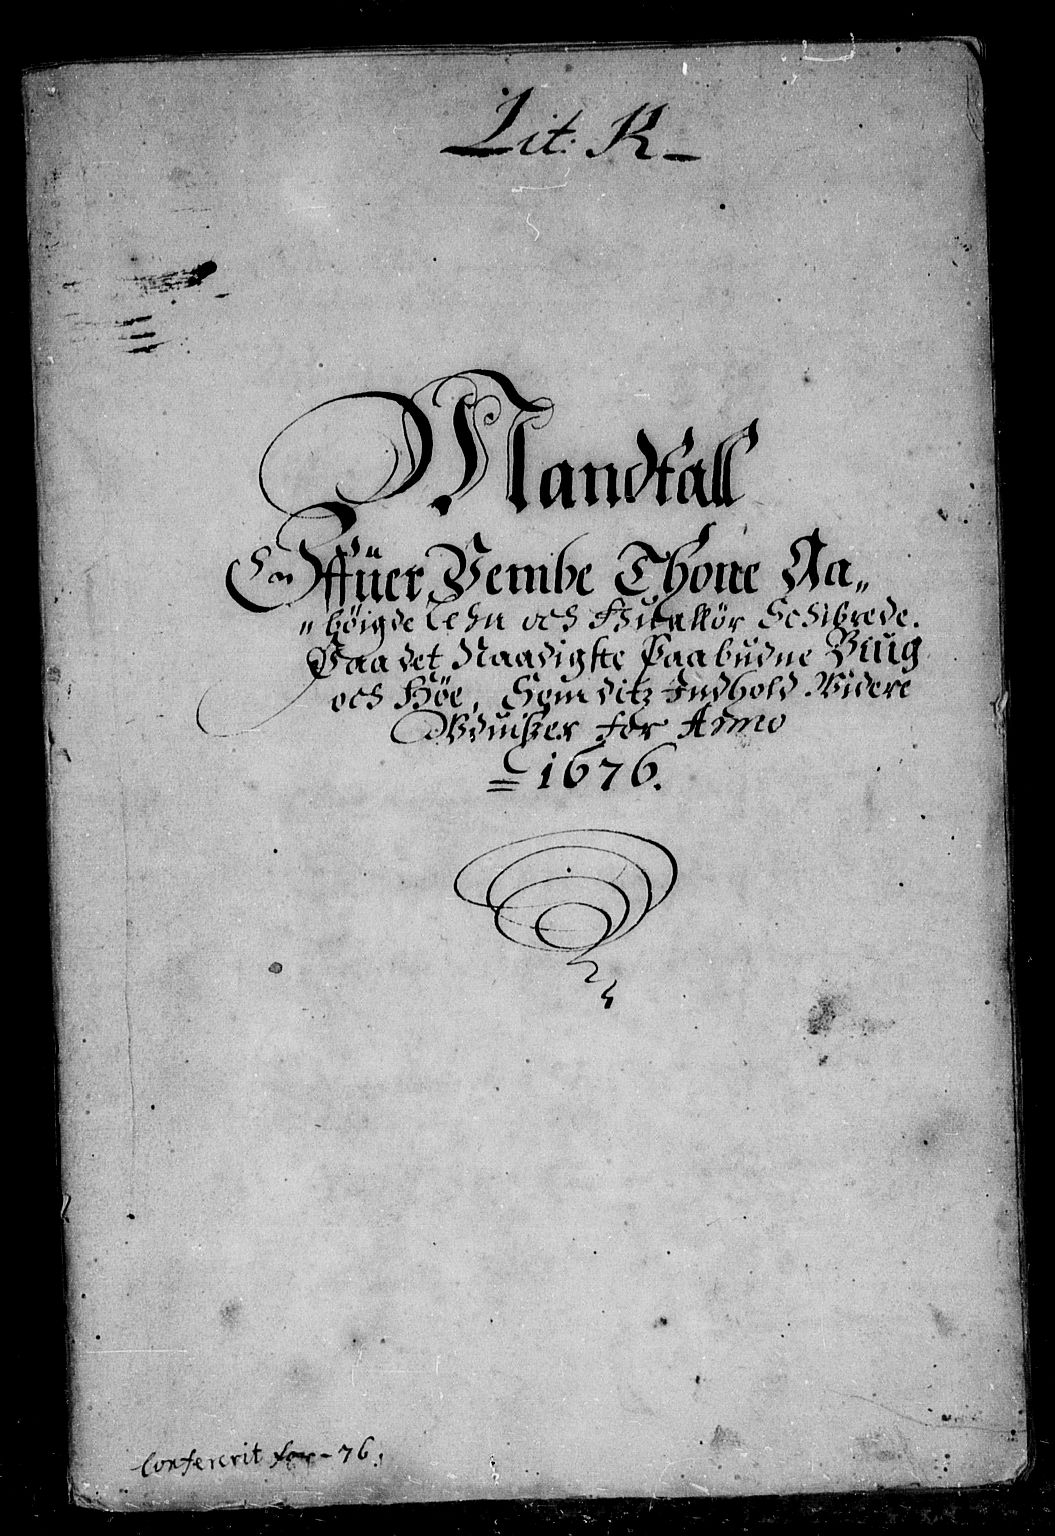 Lit: K
Mandtall
Offuer Nembe Thone Aa„
„ bøigde Lehn och Huitskiør Schibrede.
Paa det Naadigste Paabudne Biug
och Høe, Som ditz Indhold Widere
Wduißer for Anno
= 1676.
Confererit for - 76.